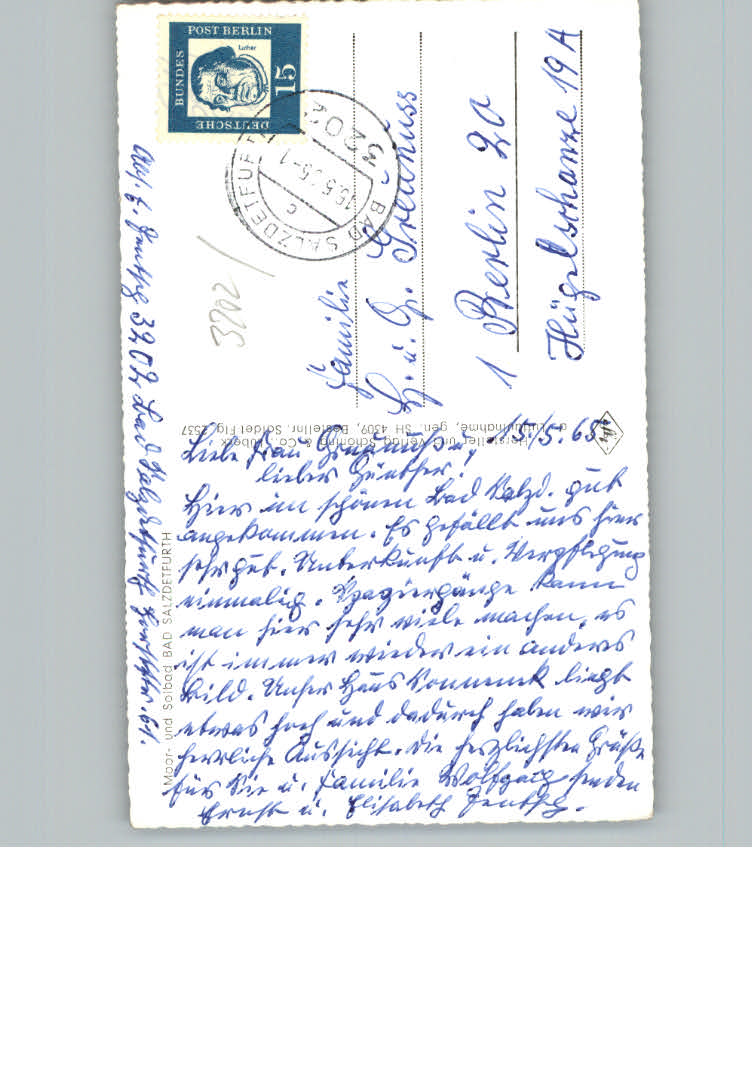 Liebe Frau Graunuß u. 15/5.65.
lieber Günther!
Hier im schönen Bad Salzd. gut
angekommen. Es gefällt uns hier
sehr gut. Unterkunft u. Verpflegung
einmalig. Spaziergänge kann
man hier sehr viele machen, es
ist immer wieder ein anderes
Bild. Unser Haus Sonneneck liegt
etwas hoch und dadurch haben wir
herrliche Aussicht. Die herzlichsten Grüße
für Sie u. Familie Wolfgang senden
Ernst u. Elisabeth
Familie
H. u. G.
1 Berlin 20
Hügelschanze 19A
Abs. E. 3202 Bad Salzdetfurth 61.
3202
DEUTSCHE BUNDESPOST BERLIN
Luther
15
3202
BAD SALZDETFURTH
c
Moor- und Solbad BAD SALZDETFURTH
Hersteller und Verlag Schöning & Co., Lübeck
Luftaufnahme, gen. SH 4309, Bestellnr. Saldet Flg 2537